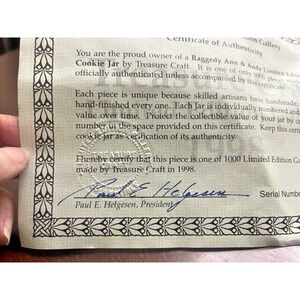 Gallery
Certificate of Authenticity
You are the proud owner of a Raggedy Ann & Andy Limited
Cookie Jar by Treasure Craft. It is one of only
officially authenticated unless accompanied by this certificate.
Each piece is unique because skilled artisans have handmade,
hand-finished every one. Each Jar is individually numbered and
value over time. Protect the collectible value of your jar by
number in the space provided on this certificate. Keep this
cookie jar as verification of its authenticity.
I hereby certify that this piece is one of 1000 Limited Edition
made by Treasure Craft in 1998.
Paul E Helgesen
Paul E. Helgesen, President
Serial Number